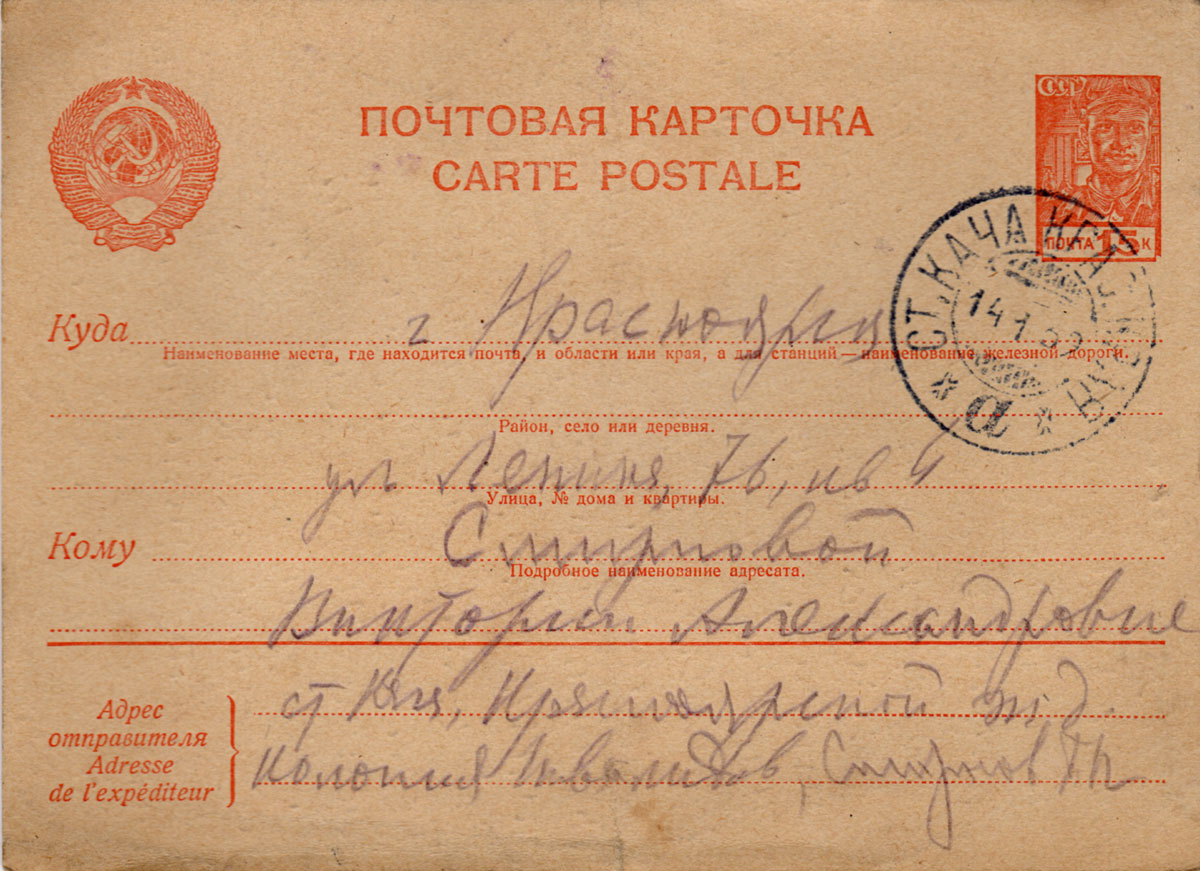 ПОЧТОВАЯ КАРТОЧКА
CARTE POSTALE
СССР
ПОЧТА 15 К
СТ. КАЧА
14 1 39
а
Куда г Красноярск
Наименование места, где находится почта, и области или края, а для станций—наименование железной дороги.
Район, село или деревня.
ул Ленина, 76, кв 4
Улица, № дома и квартиры.
Кому Смирновой
Подробное наименование адресата.
Виктории Александровне
Адрес
отправителя
Adresse
de l'expéditeur
ст Кача, Красноярской ж.д.
Колония Инвалидов, Смирнов